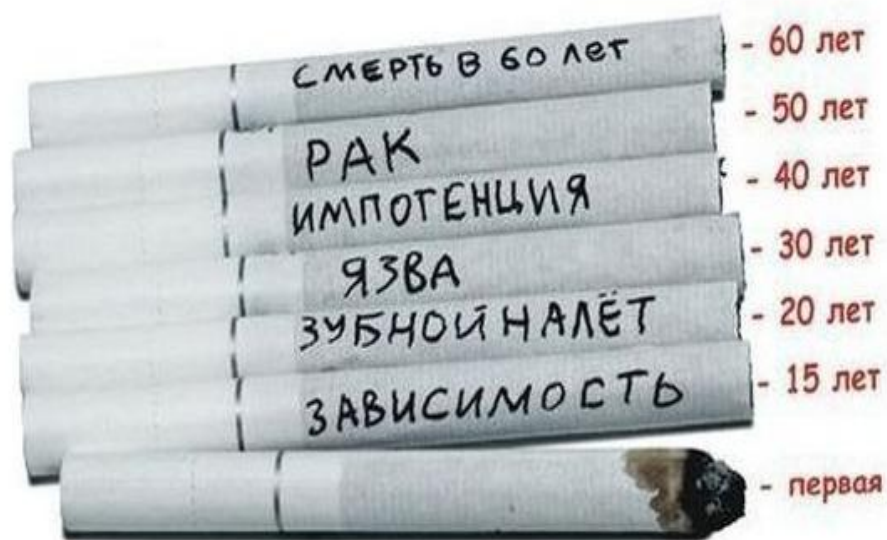 СМЕРТЬ В 60 лет - 60 лет
- 50 лет
РАК
- 40 лет
ИМПОТЕНЦИЯ
- 30 лет
ЯЗВА
- 20 лет
ЗУБНОЙ НАЛЁТ
- 15 лет
ЗАВИСИМОСТЬ
- первая